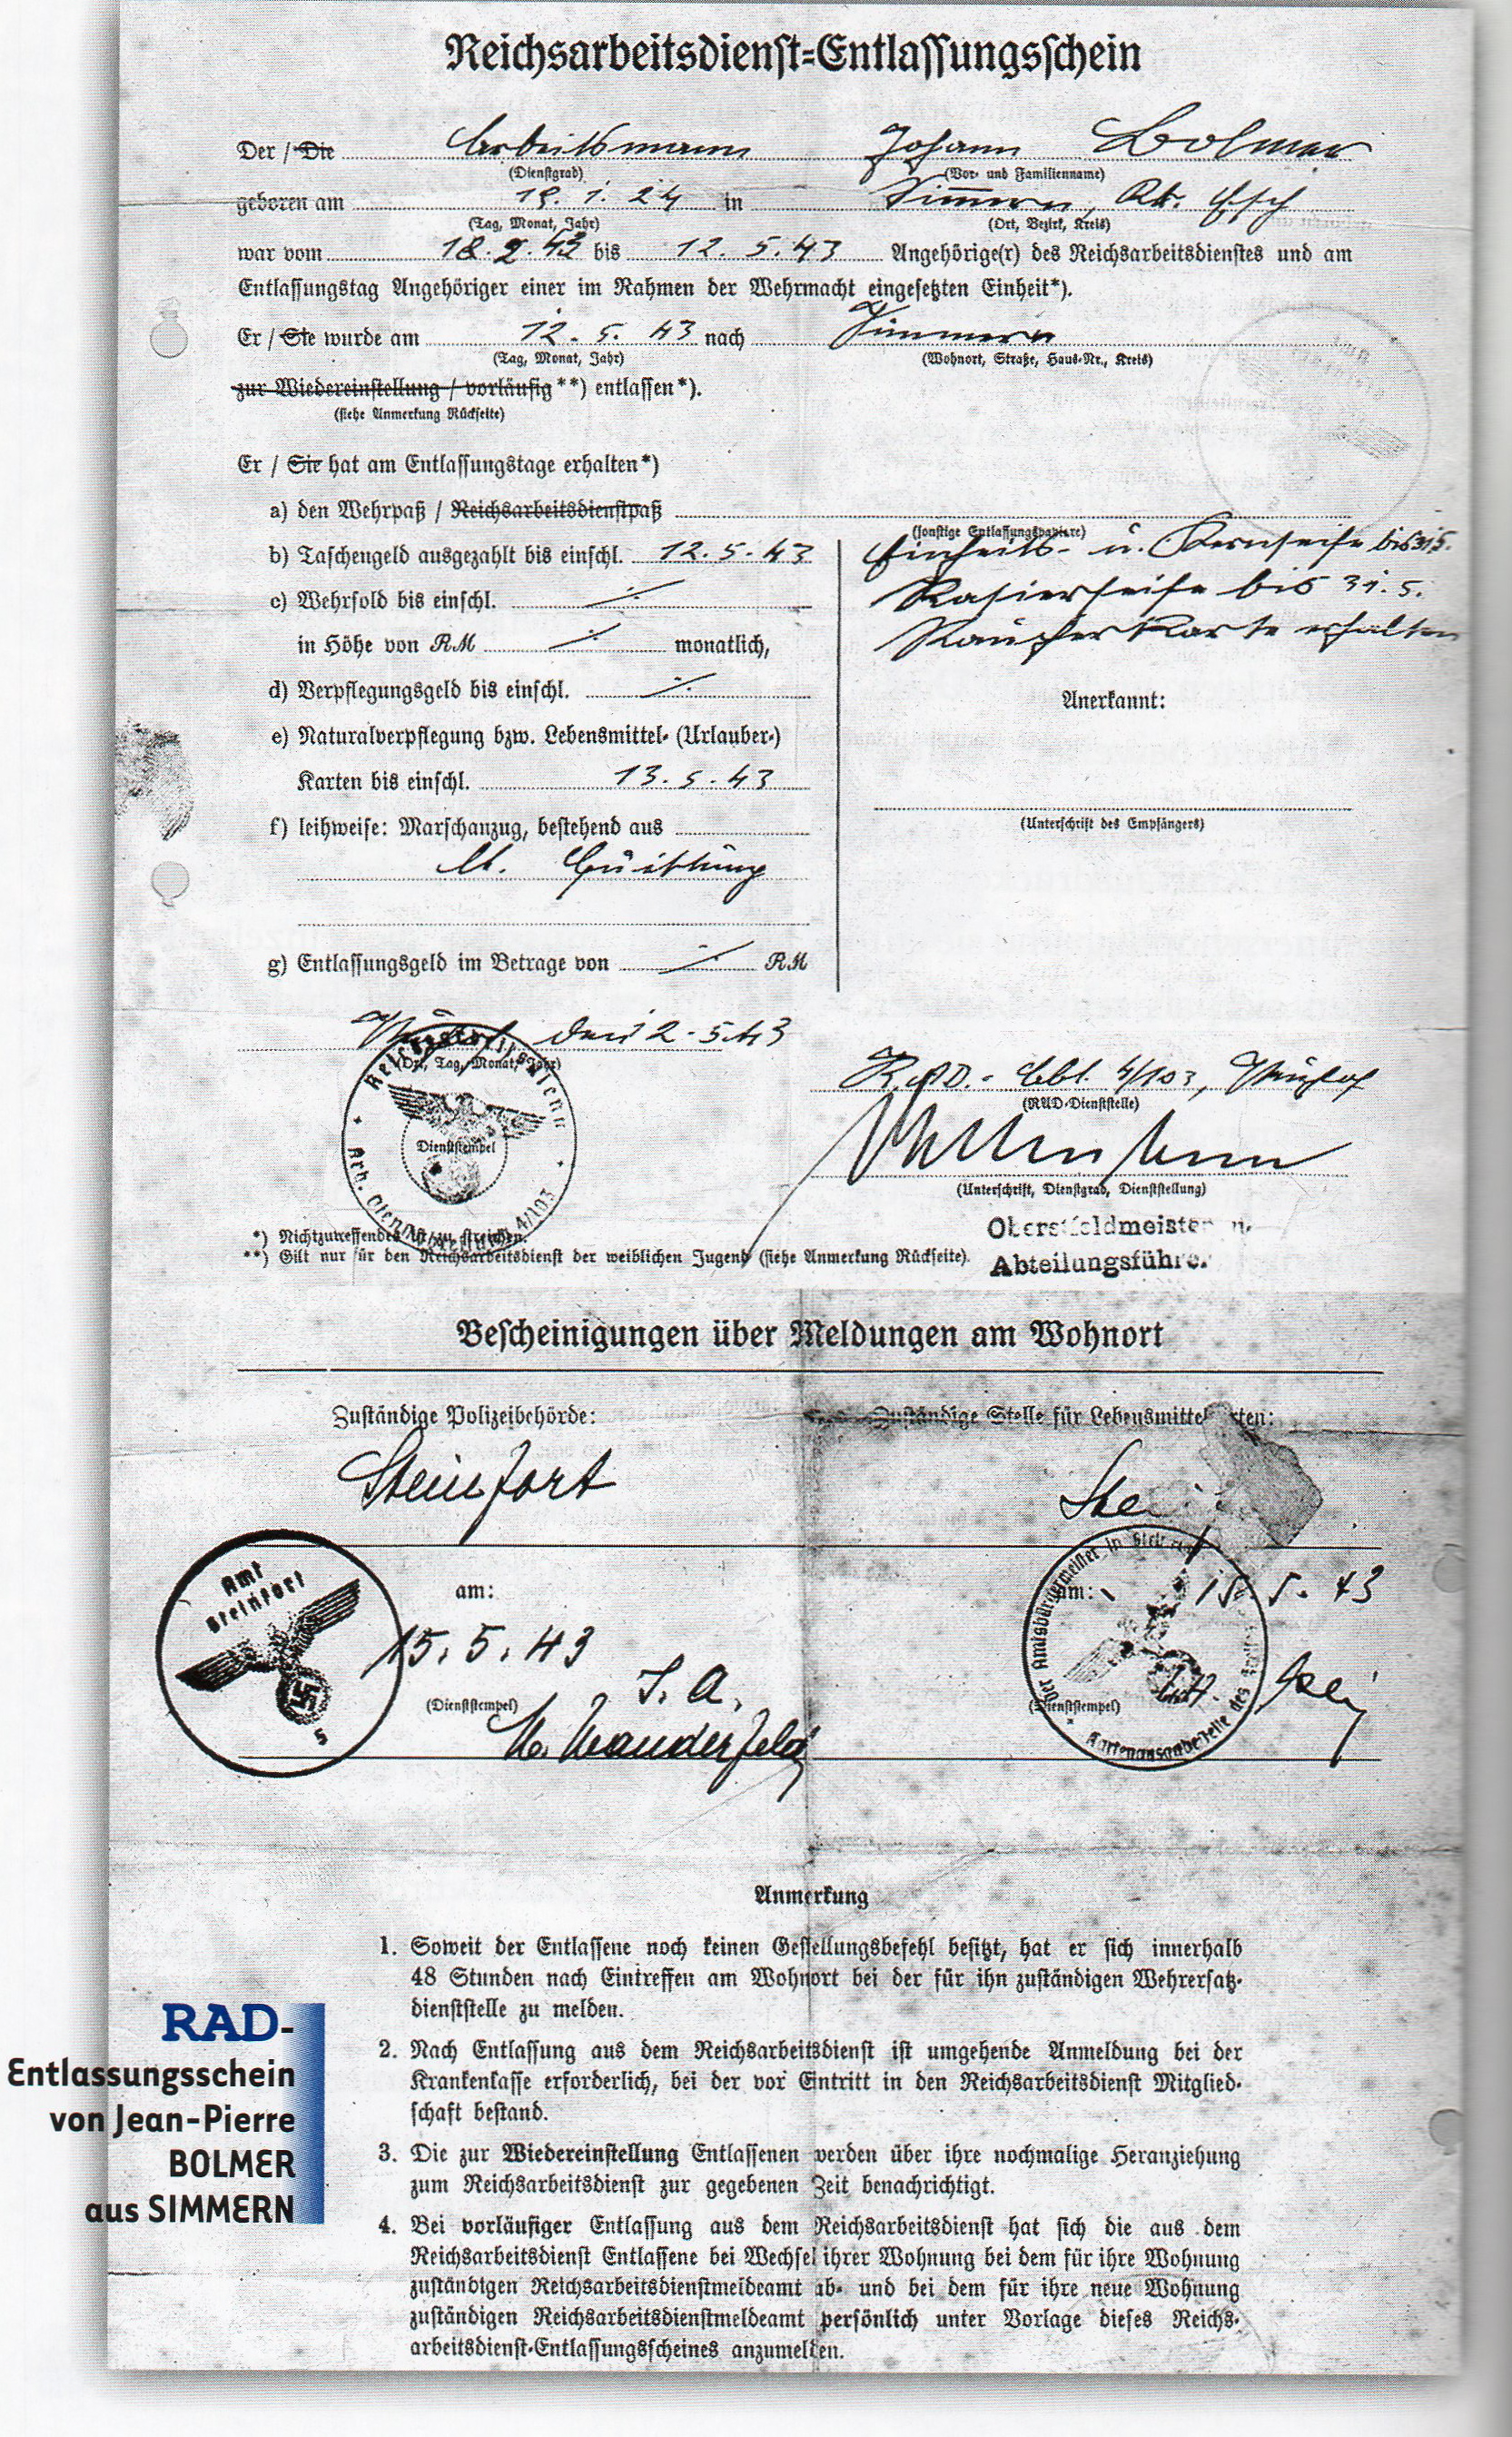 Reichsarbeitsdienst-Entlassungsschein
Der / Die Arbeitsmann Johann Bolmer
(Dienstgrad) (Vor- und Familienname)
geboren am 19. 1. 24 in Simmern, Kr. Esch
(Tag, Monat, Jahr) (Ort, Bezirk, Kreis)
war vom 18.2.43 bis 12.5.43 Angehörige(r) des Reichsarbeitsdienstes und am
Entlassungstag Angehöriger einer im Rahmen der Wehrmacht eingesetzten Einheit*).
Er / Sie wurde am 12. 5. 43 nach Simmern
(Tag, Monat, Jahr) (Wohnort, Straße, Haus-Nr., Kreis)
zur Wiedereinstellung / vorläufig**) entlassen*).
(siehe Anmerkung Rückseite)
Er / Sie hat am Entlassungstage erhalten*)
a) den Wehrpaß / Reichsarbeitsdienstpaß
(sonstige Entlassungspapiere)
b) Taschengeld ausgezahlt bis einschl. 12.5.43
c) Wehrsold bis einschl. ⁒
in Höhe von RM ⁒ monatlich,
d) Verpflegungsgeld bis einschl. ⁒
e) Naturalverpflegung bzw. Lebensmittel- (Urlauber-)
Karten bis einschl. 13.5.43
f) leihweise: Marschanzug, bestehend aus
lt. Quittung
g) Entlassungsgeld im Betrage von ⁒ RM
Einheits- u. Kernseife bis 31.5.
Rasierseife bis 31.5.
Raucherkarte erhalten
Anerkannt:
(Unterschrift des Empfängers)
den 12.5.43
(Ort, Tag, Monat, Jahr)
Reichsarbeitsdienst
Dienststempel
4/103
R.A.D.- Abt. 4/103,
(RAD-Dienststelle)
(Unterschrift, Dienstgrad, Dienststellung)
Oberstfeldmeister u.
Abteilungsführer
*) Nichtzutreffendes ist zu streichen.
**) Gilt nur für den Reichsarbeitsdienst der weiblichen Jugend (siehe Anmerkung Rückseite).
Bescheinigungen über Meldungen am Wohnort
Zuständige Polizeibehörde: Zuständige Stelle für Lebensmittelkarten:
Steinfort
Amt
Steinfort
5
am: am:
15.5.43 15.5.43
I. A.
(Dienststempel) (Dienststempel)
Der Amtsbürgermeister in Steinfort
Kartenausgabestelle des
Anmerkung
1. Soweit der Entlassene noch keinen Gestellungsbefehl besitzt, hat er sich innerhalb
48 Stunden nach Eintreffen am Wohnort bei der für ihn zuständigen Wehrersatz-
dienststelle zu melden.
2. Nach Entlassung aus dem Reichsarbeitsdienst ist umgehende Anmeldung bei der
Krankenkasse erforderlich, bei der vor Eintritt in den Reichsarbeitsdienst Mitglied-
schaft bestand.
3. Die zur Wiedereinstellung Entlassenen werden über ihre nochmalige Heranziehung
zum Reichsarbeitsdienst zur gegebenen Zeit benachrichtigt.
4. Bei vorläufiger Entlassung aus dem Reichsarbeitsdienst hat sich die aus dem
Reichsarbeitsdienst Entlassene bei Wechsel ihrer Wohnung bei dem für ihre Wohnung
zuständigen Reichsarbeitsdienstmeldeamt ab- und bei dem für ihre neue Wohnung
zuständigen Reichsarbeitsdienstmeldeamt persönlich unter Vorlage dieses Reichs-
arbeitsdienst-Entlassungsscheines anzumelden.
RAD-
Entlassungsschein
von Jean-Pierre
BOLMER
aus SIMMERN